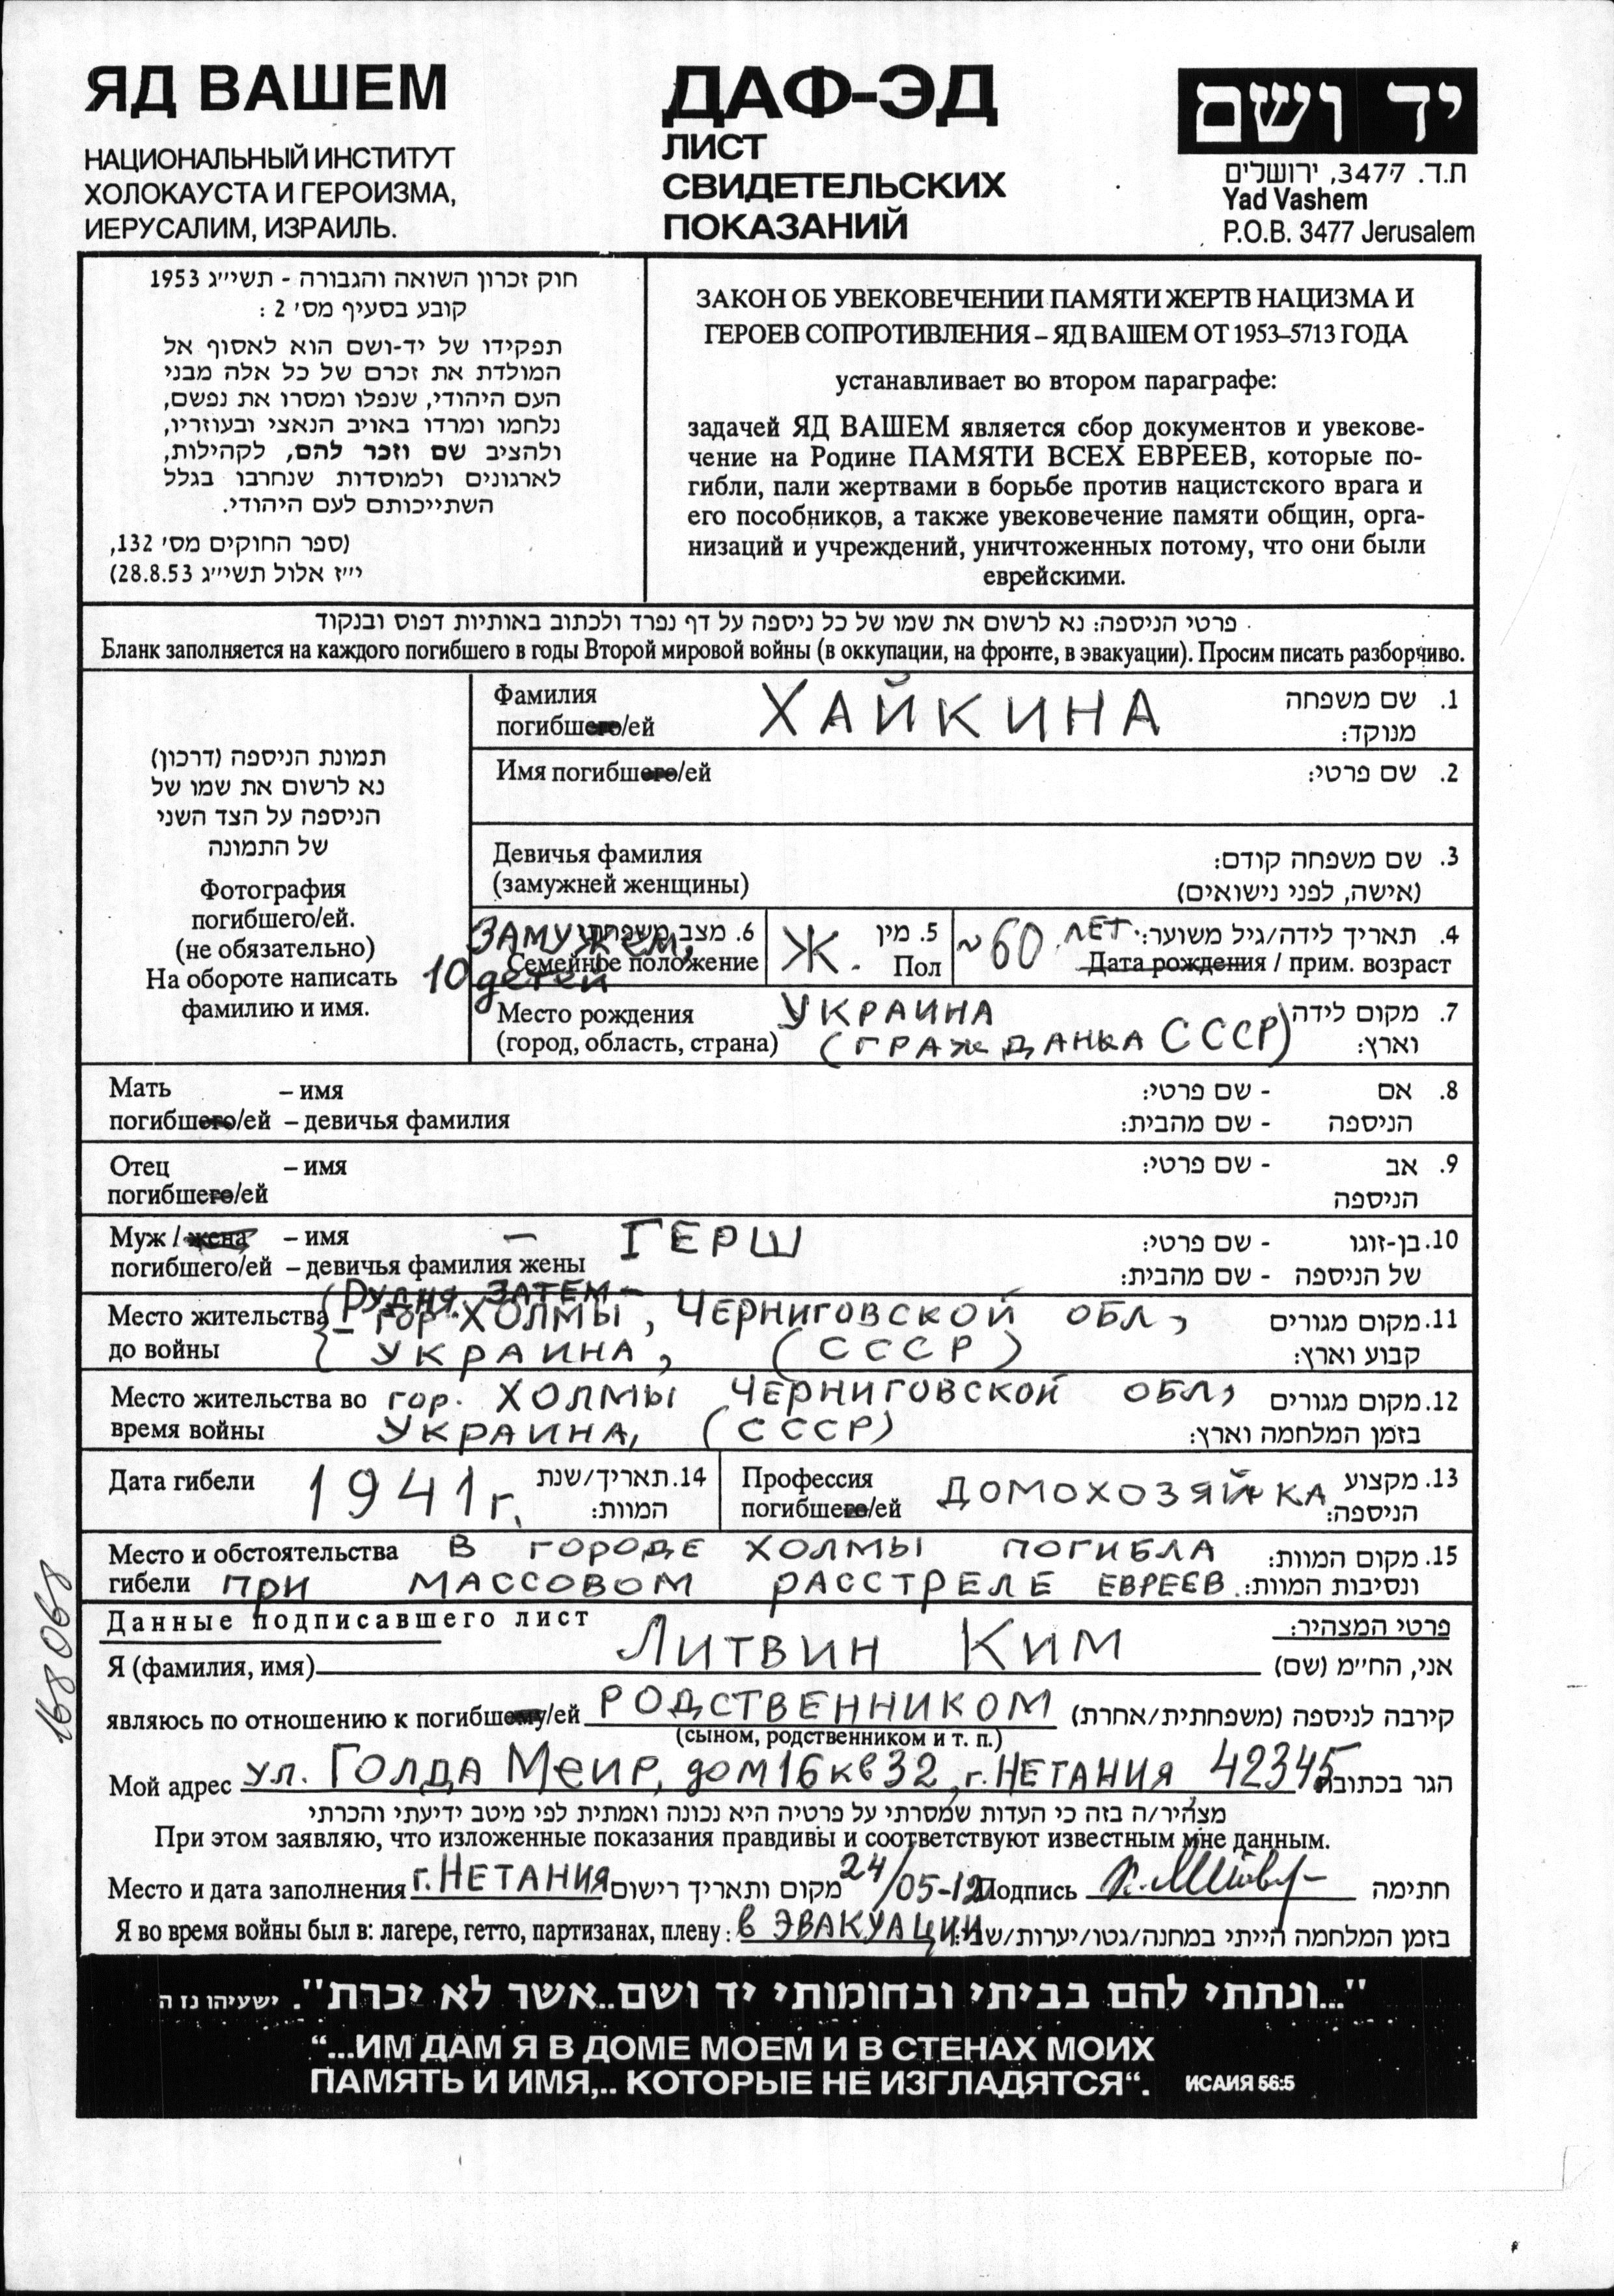 ЯД ВАШЕМ
НАЦИОНАЛЬНЫЙ ИНСТИТУТ
ХОЛОКАУСТА И ГЕРОИЗМА,
ИЕРУСАЛИМ, ИЗРАИЛЬ.
ДАФ-ЭД
ЛИСТ
СВИДЕТЕЛЬСКИХ
ПОКАЗАНИЙ
יד ושם
ת.ד. 3477, ירושלים
Yad Vashem
P.O.B. 3477 Jerusalem
חוק זכרון השואה והגבורה - תשי״ג 1953
קובע בסעיף מס׳ 2 :
תפקידו של יד-ושם הוא לאסוף אל
המולדת את זכרם של כל אלה מבני
העם היהודי, שנפלו ומסרו את נפשם,
נלחמו ומרדו באויב הנאצי ובעוזריו,
ולהציב שם וזכר להם, לקהילות,
לארגונים ולמוסדות שנחרבו בגלל
השתייכותם לעם היהודי.
(ספר החוקים מס׳ 132,
י״ז אלול תשי״ג 28.8.53)
ЗАКОН ОБ УВЕКОВЕЧЕНИИ ПАМЯТИ ЖЕРТВ НАЦИЗМА И
ГЕРОЕВ СОПРОТИВЛЕНИЯ – ЯД ВАШЕМ ОТ 1953–5713 ГОДА
устанавливает во втором параграфе:
задачей ЯД ВАШЕМ является сбор документов и увекове-
чение на Родине ПАМЯТИ ВСЕХ ЕВРЕЕВ, которые по-
гибли, пали жертвами в борьбе против нацистского врага и
его пособников, а также увековечение памяти общин, орга-
низаций и учреждений, уничтоженных потому, что они были
еврейскими.
פרטי הניספה: נא לרשום את שמו של כל ניספה על דף נפרד ולכתוב באותיות דפוס ובנקוד
Бланк заполняется на каждого погибшего в годы Второй мировой войны (в оккупации, на фронте, в эвакуации). Просим писать разборчиво.
תמונת הניספה (דרכון)
נא לרשום את שמו של
הניספה על הצד השני
של התמונה
Фотография
погибшего/ей.
(не обязательно)
На обороте написать
фамилию и имя.
Фамилия ХАЙКИНА 1. שם משפחה
погибшего/ей מנוקד:
Имя погибшего/ей 2. שם פרטי:
Девичья фамилия 3. שם משפחה קודם:
(замужней женщины) (אישה, לפני נישואים)
ЗАМУЖЕМ, 6. מצב משפחתי: Ж. 5. מין ~60 ЛЕТ 4. תאריך לידה/גיל משוער:
10 детей Семейное положение Пол Дата рождения / прим. возраст
Место рождения УКРАИНА 7. מקום לידה
(город, область, страна) (ГРАЖДАНКА СССР) וארץ:
Мать – имя 8. אם - שם פרטי:
погибшего/ей – девичья фамилия הניספה - שם מהבית:
Отец – имя 9. אב - שם פרטי:
погибшего/ей הניספה
Муж / жена – имя – ГЕРШ 10. בן-זוגו - שם פרטי:
погибшего/ей – девичья фамилия жены של הניספה - שם מהבית:
РУДНЯ ЗАТЕМ –
Место жительства гор ХОЛМЫ, ЧЕРНИГОВСКОЙ ОБЛ, 11. מקום מגורים
до войны УКРАИНА, (СССР) קבוע וארץ:
Место жительства во гор. ХОЛМЫ ЧЕРНИГОВСКОЙ ОБЛ, 12. מקום מגורים
время войны УКРАИНА, (СССР) בזמן המלחמה וארץ:
Дата гибели 1941г. 14. תאריך/שנת המוות:
Профессия ДОМОХОЗЯЙКА 13. מקצוע
погибшего/ей הניספה:
Место и обстоятельства В ГОРОДЕ ХОЛМЫ ПОГИБЛА 15. מקום המוות:
гибели ПРИ МАССОВОМ РАССТРЕЛЕ ЕВРЕЕВ. ונסיבות המוות:
168068
Данные подписавшего лист פרטי המצהיר:
Я (фамилия, имя) ЛИТВИН КИМ אני, הח״מ (שם)
являюсь по отношению к погибшему/ей РОДСТВЕННИКОМ קירבה לניספה (משפחתית/אחרת)
(сыном, родственником и т. п.)
Мой адрес ул. ГОЛДА МЕИР, дом 16 кв 32, г. НЕТАНИЯ 42345 הגר בכתובת
מצהיר/ה בזה כי העדות שמסרתי על פרטיה היא נכונה ואמתית לפי מיטב ידיעתי והכרתי
При этом заявляю, что изложенные показания правдивы и соответствуют известным мне данным.
Место и дата заполнения г. НЕТАНИЯ מקום ותאריך רישום 24/05-12 Подпись חתימה
Я во время войны был в: лагере, гетто, партизанах, плену: в ЭВАКУАЦИИ בזמן המלחמה הייתי במחנה/גטו/יערות/שבי:
"...ונתתי להם בביתי ובחומותי יד ושם..אשר לא יכרת". ישעיהו נז ה
“...ИМ ДАМ Я В ДОМЕ МОЕМ И В СТЕНАХ МОИХ
ПАМЯТЬ И ИМЯ,.. КОТОРЫЕ НЕ ИЗГЛАДЯТСЯ“. ИСАИЯ 56:5